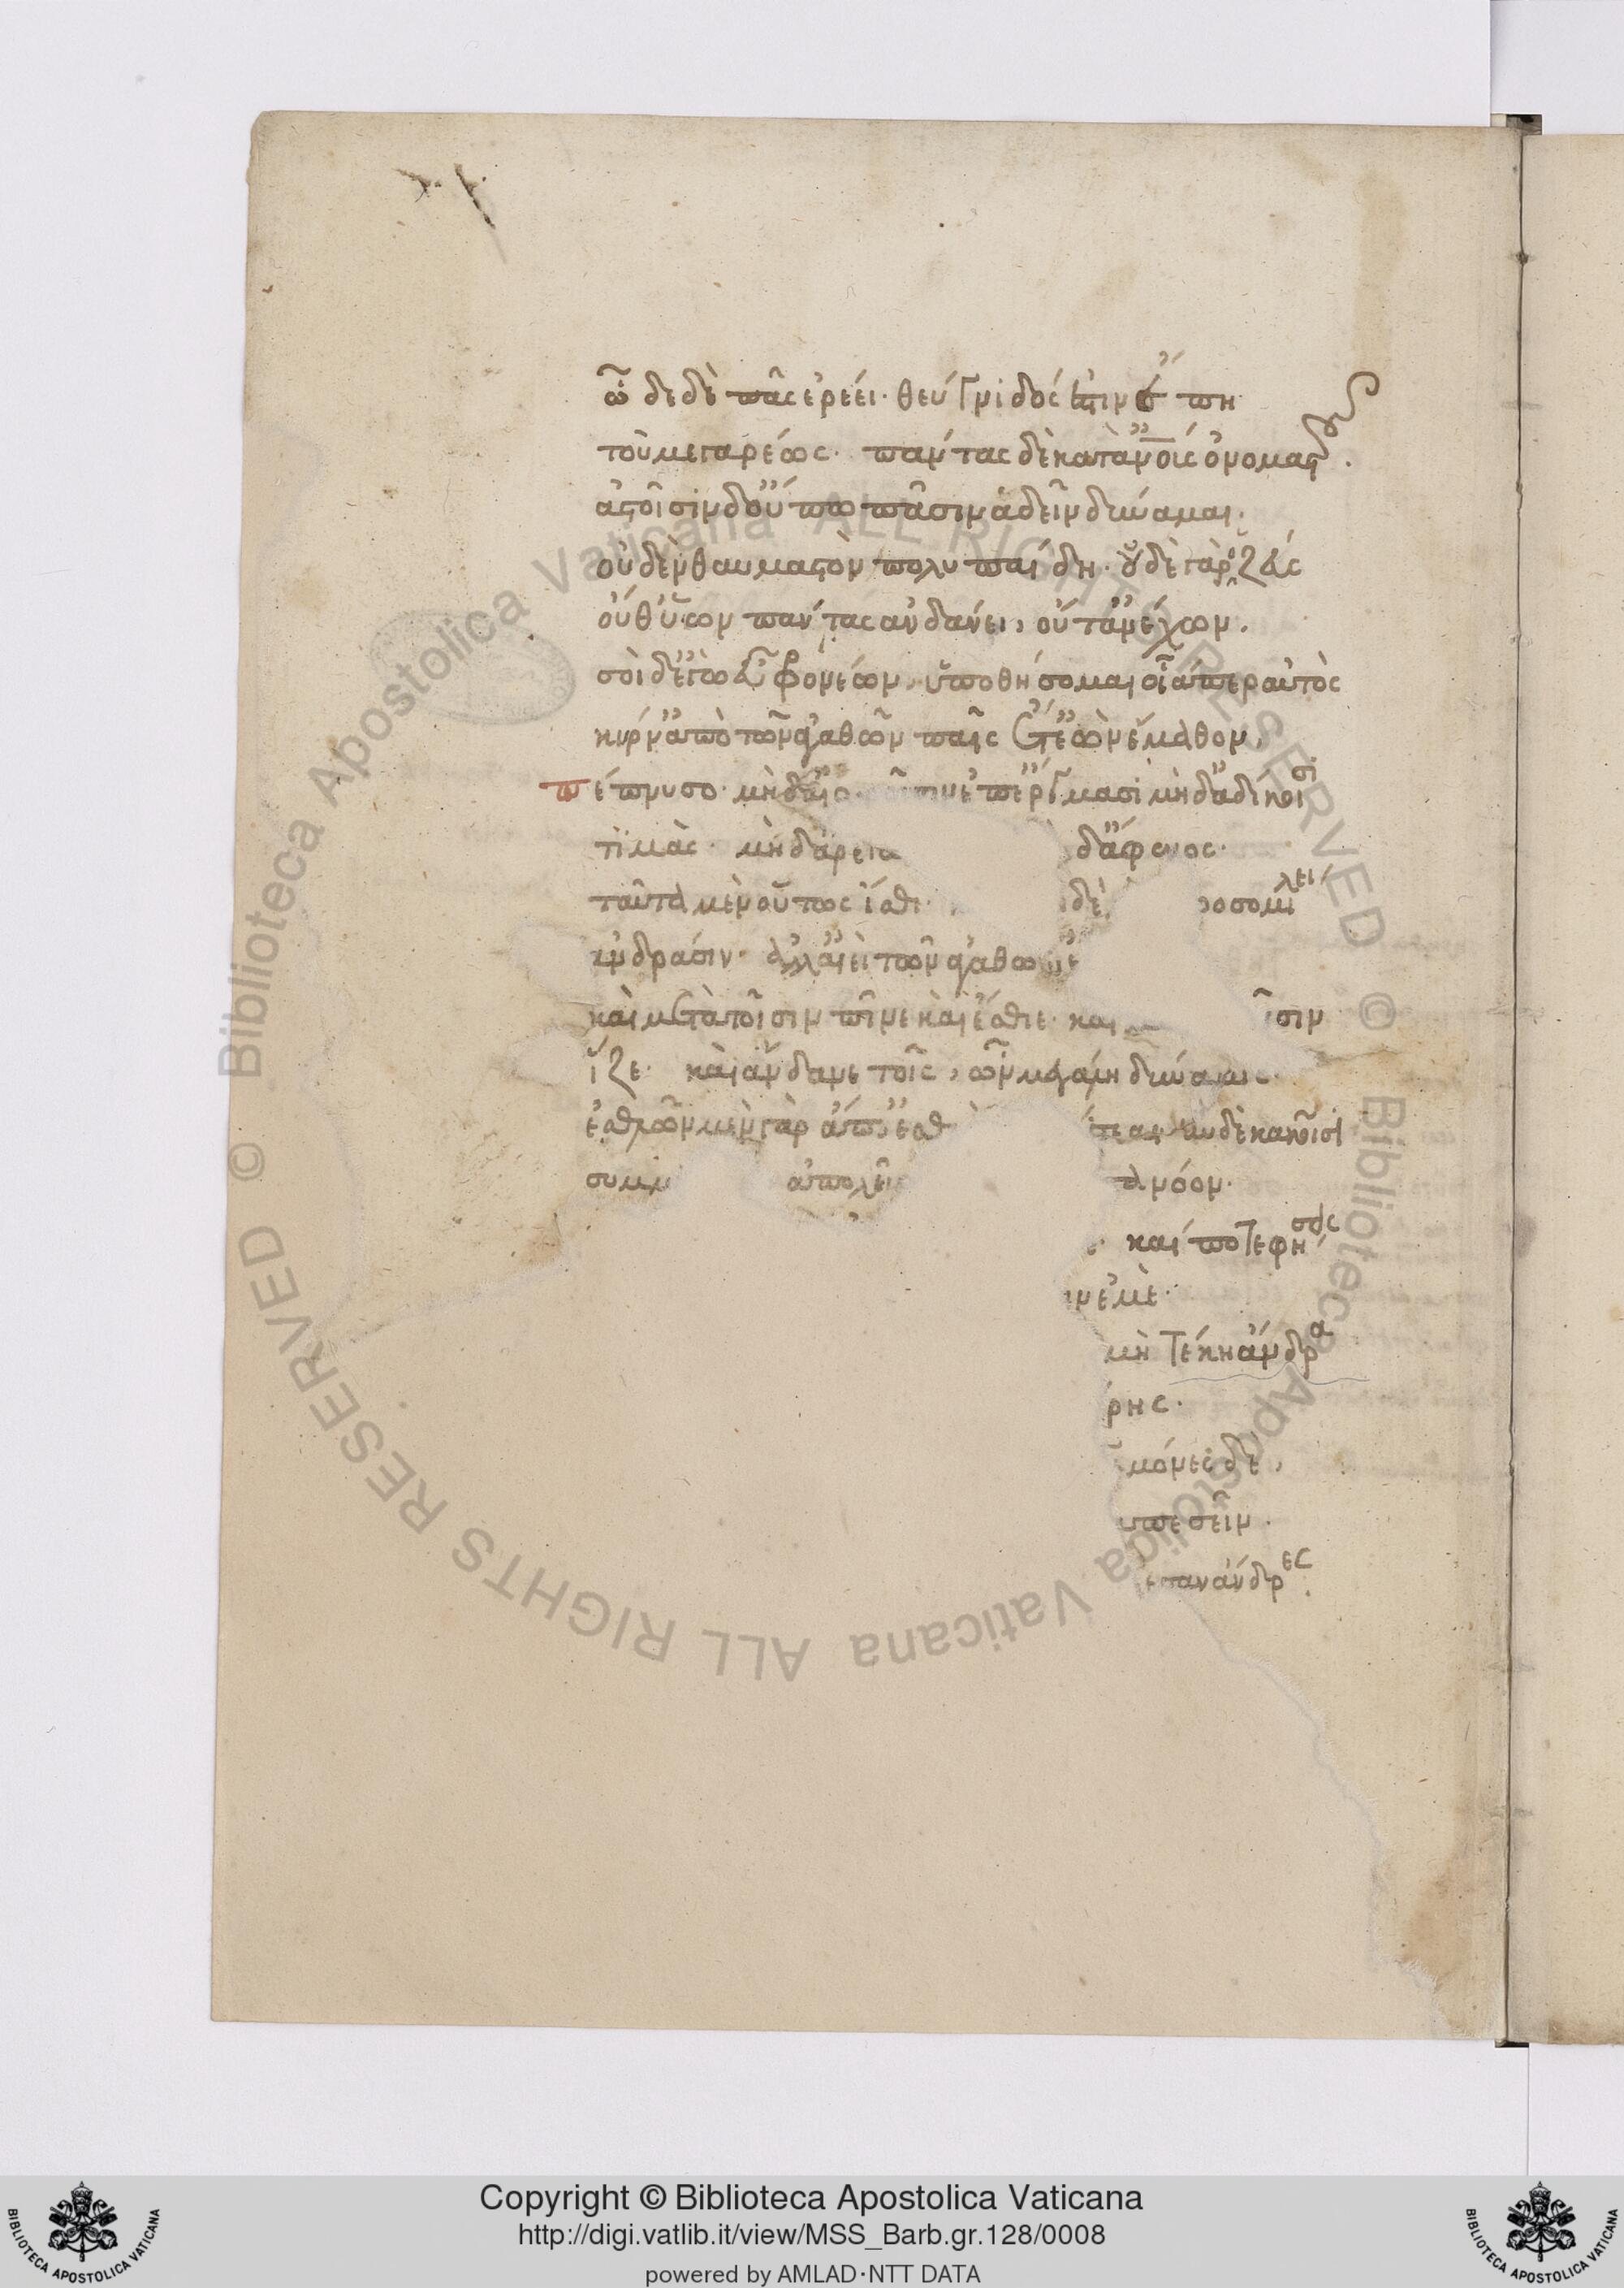 ὧδε δὲ πᾶς ἐρέει· θεύγνιδός ἐστιν ἔπη
τοῦ μεγαρέως· πάντας δὲ κατ' ἀνους ὀνομαστοῦ.
ἀστοῖσιν δ' οὔπω πᾶσιν ἁδεῖν δύναμαι·
οὐδὲν θαυμαστὸν πολυπαίδη· οὐδὲ γὰρ ὁ ζεύς
οὔθ' ὕων πάντας ἁνδάνει, οὔτ' ἀνέχων.
σοὶ δ' ἐγὼ εὖ φρονέων, ὑποθήσομαι οἷάπερ αὐτὸς
κύρν' ἀπὸ τῶν ἀγαθῶν παῖς ἔτ' ἐὼν ἔμαθον,
πέπνυσο· μηδ' αἰσ ἐπ' ἔργμασι μηδ' ἀδίκοισι
τιμὰς· μηδ' ἀρετὰ δ' ἄφενος·
ταῦτα μὲν οὕτως ἴσθι· δὲ προσομίλει
ἀνδράσιν· ἀλλ' αἰεὶ τῶν ἀγαθῶν ἔ
καὶ μετὰ τοῖσιν πῖνε καὶ ἔσθιε· καὶ ῖσιν
ἵζε· καὶ ἅνδανε τοῖς, ὧν μεγάλη δύναμις·
ἐσθλῶν μὲν γὰρ ἄπ' ἐσθ ἢν δὲ κακοῖσι
συμμ ἀπολεῖ νόον·
καί ποτε φήσεις
ν ἐμὲ·
μὴ τέκη ἄνδρα
ρης·
μόνες δὲ,
πεσεῖν·
αν ἄνδρες
Copyright © Biblioteca Apostolica Vaticana
http://digi.vatlib.it/view/MSS_Barb.gr.128/0008
powered by AMLAD·NTT DATA
BIBLIOTECA APOSTOLICA VATICANA
BIBLIOTECA APOSTOLICA VATICANA
© Biblioteca Apostolica Vaticana ALL RIGHTS RESERVED
© Biblioteca Apostolica Vaticana ALL RIGHTS RESERVED